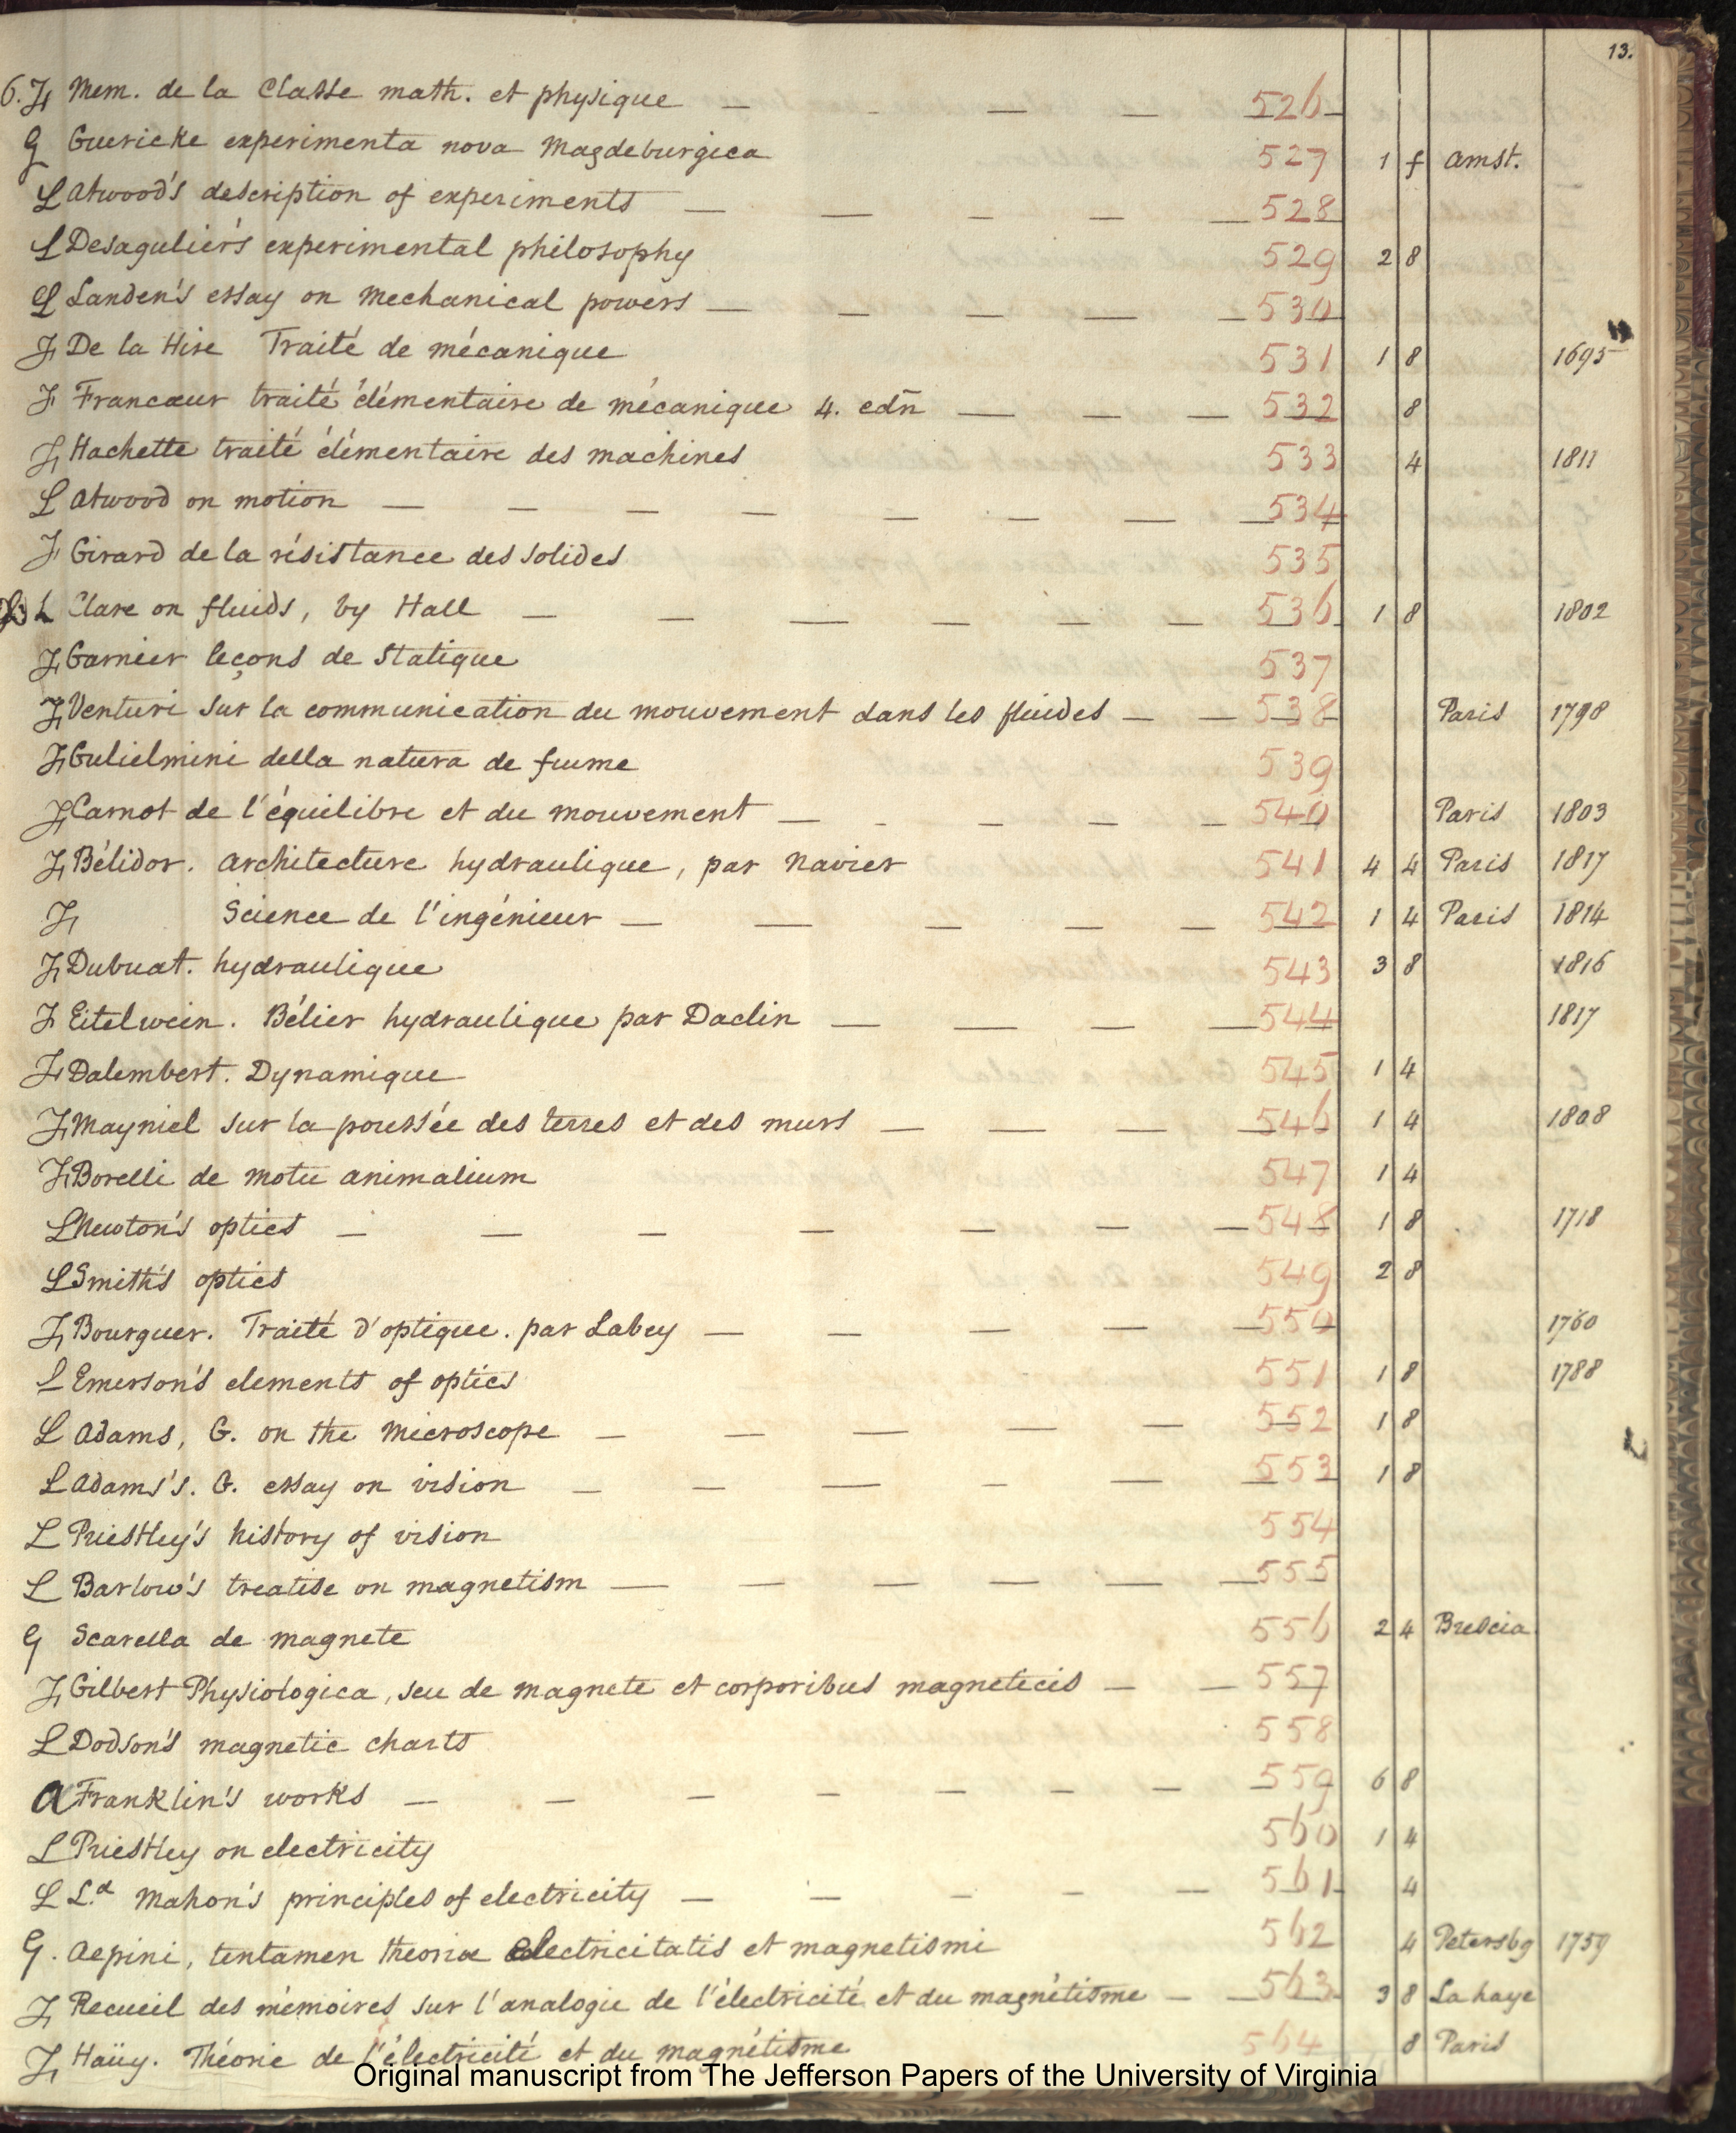 13.
6. F Mem. de la Classe math. et physique — - — — 526
G Guericke experimenta nova Magdeburgica 527 1 f Amst.
L Atwood's description of experiments — — — — — 528
L Desagulier's experimental philosophy 529 2 8
L Landen's essay on mechanical powers — — — — — 530
F De la Hire Traité de mécanique 531 1 8 1695
F Francœur traité élémentaire de mécanique 4. edñ — — — 532 8
F Hachette traité élémentaire des machines 533 4 1811
L Atwood on motion — — — — — — — — 534
F Girard de la résistance des solides 535
L Clare on fluids, by Hall — — — — — — 536 1 8 1802
F Garnier leçons de Statique 537
F Venturi sur la communication du mouvement dans les fluides — — 538 Paris 1798
F Gulielmini della natura de fiume 539
F Carnot de l'équilibre et du mouvement — - — — — 540 Paris 1803
F Bélidor. Architecture hydraulique, par Navier 541 4 4 Paris 1817
F Science de l'ingénieur — — — — — 542 1 4 Paris 1814
F Dubuat. hydraulique 543 3 8 1816
F Eitelwein. Bélier hydraulique par Daclin — — — — 544 1817
F Dalembert. Dynamique 545 1 4
F Mayniel sur la poussée des terres et des murs — — — — 546 1 4 1808
F Borelli de motu animalium 547 1 4
L Newton's optics — — — — — — — 548 1 8 1718
L Smith's optics 549 2 8
F Bourguer. Traité d'optique. par Labey — — — — — 550 1760
L Emerson's elements of optics 551 1 8 1788
L Adams, G. on the Microscope — — — — — 552 1 8
L Adams's. G. essay on vision — — — - — — 553 1 8
L Priestley's history of vision 554
L Barlow's treatise on magnetism — — — — — — 555
G Scarella de magnete 556 2 4 Brescia
F Gilbert Physiologica, seu de magnete et corporibus magneticis — — 557
L Dodson's magnetic charts 558
A Franklin's works — — — — — — — — 559 6 8
L Priestley on electricity 560 1 4
L L.d Mahon's principles of electricity — — — — — 561 4
G. Aepini, tentamen theoriæ electricitatis et magnetismi 562 4 Petersbg 1759
F Recueil des mémoires sur l'analogie de l'électricité et du magnétisme — — 563 3 8 La haye
F Haüy. Théorie de l'électricité et du magnétisme 564 8 Paris
Original manuscript from The Jefferson Papers of the University of Virginia